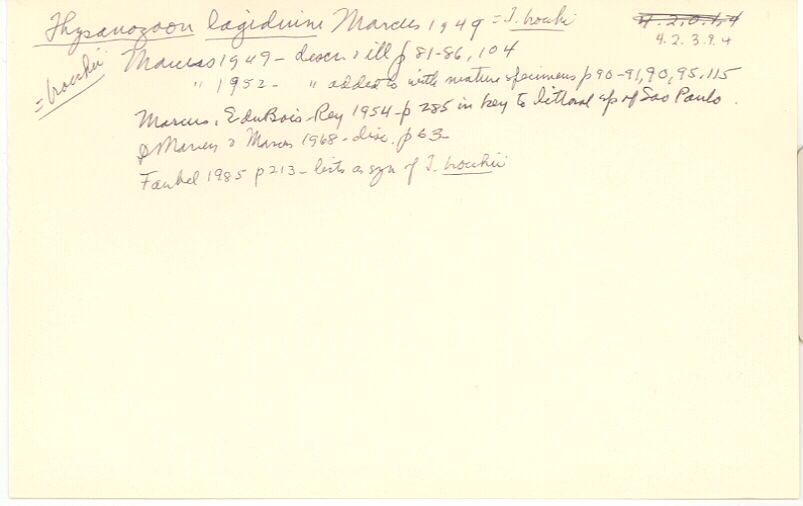 Thysanozoon lagidium Marcus 1949 = T. brocchii
4.2.0.1.4
4.2.3.9.4
= brocchii
Marcus 1949 - descr. & ill p 81-86, 104
" 1952 - " added to with mature specimens p 90-91, 90, 95, 115
Marcus, E. duBois-Rey 1954 - p 285 in key to littoral sp of Sao Paulo.
Marcus & Marcus 1968 - disc. p 63
Faubel 1985 p 213 - lists as syn of T. brocchii